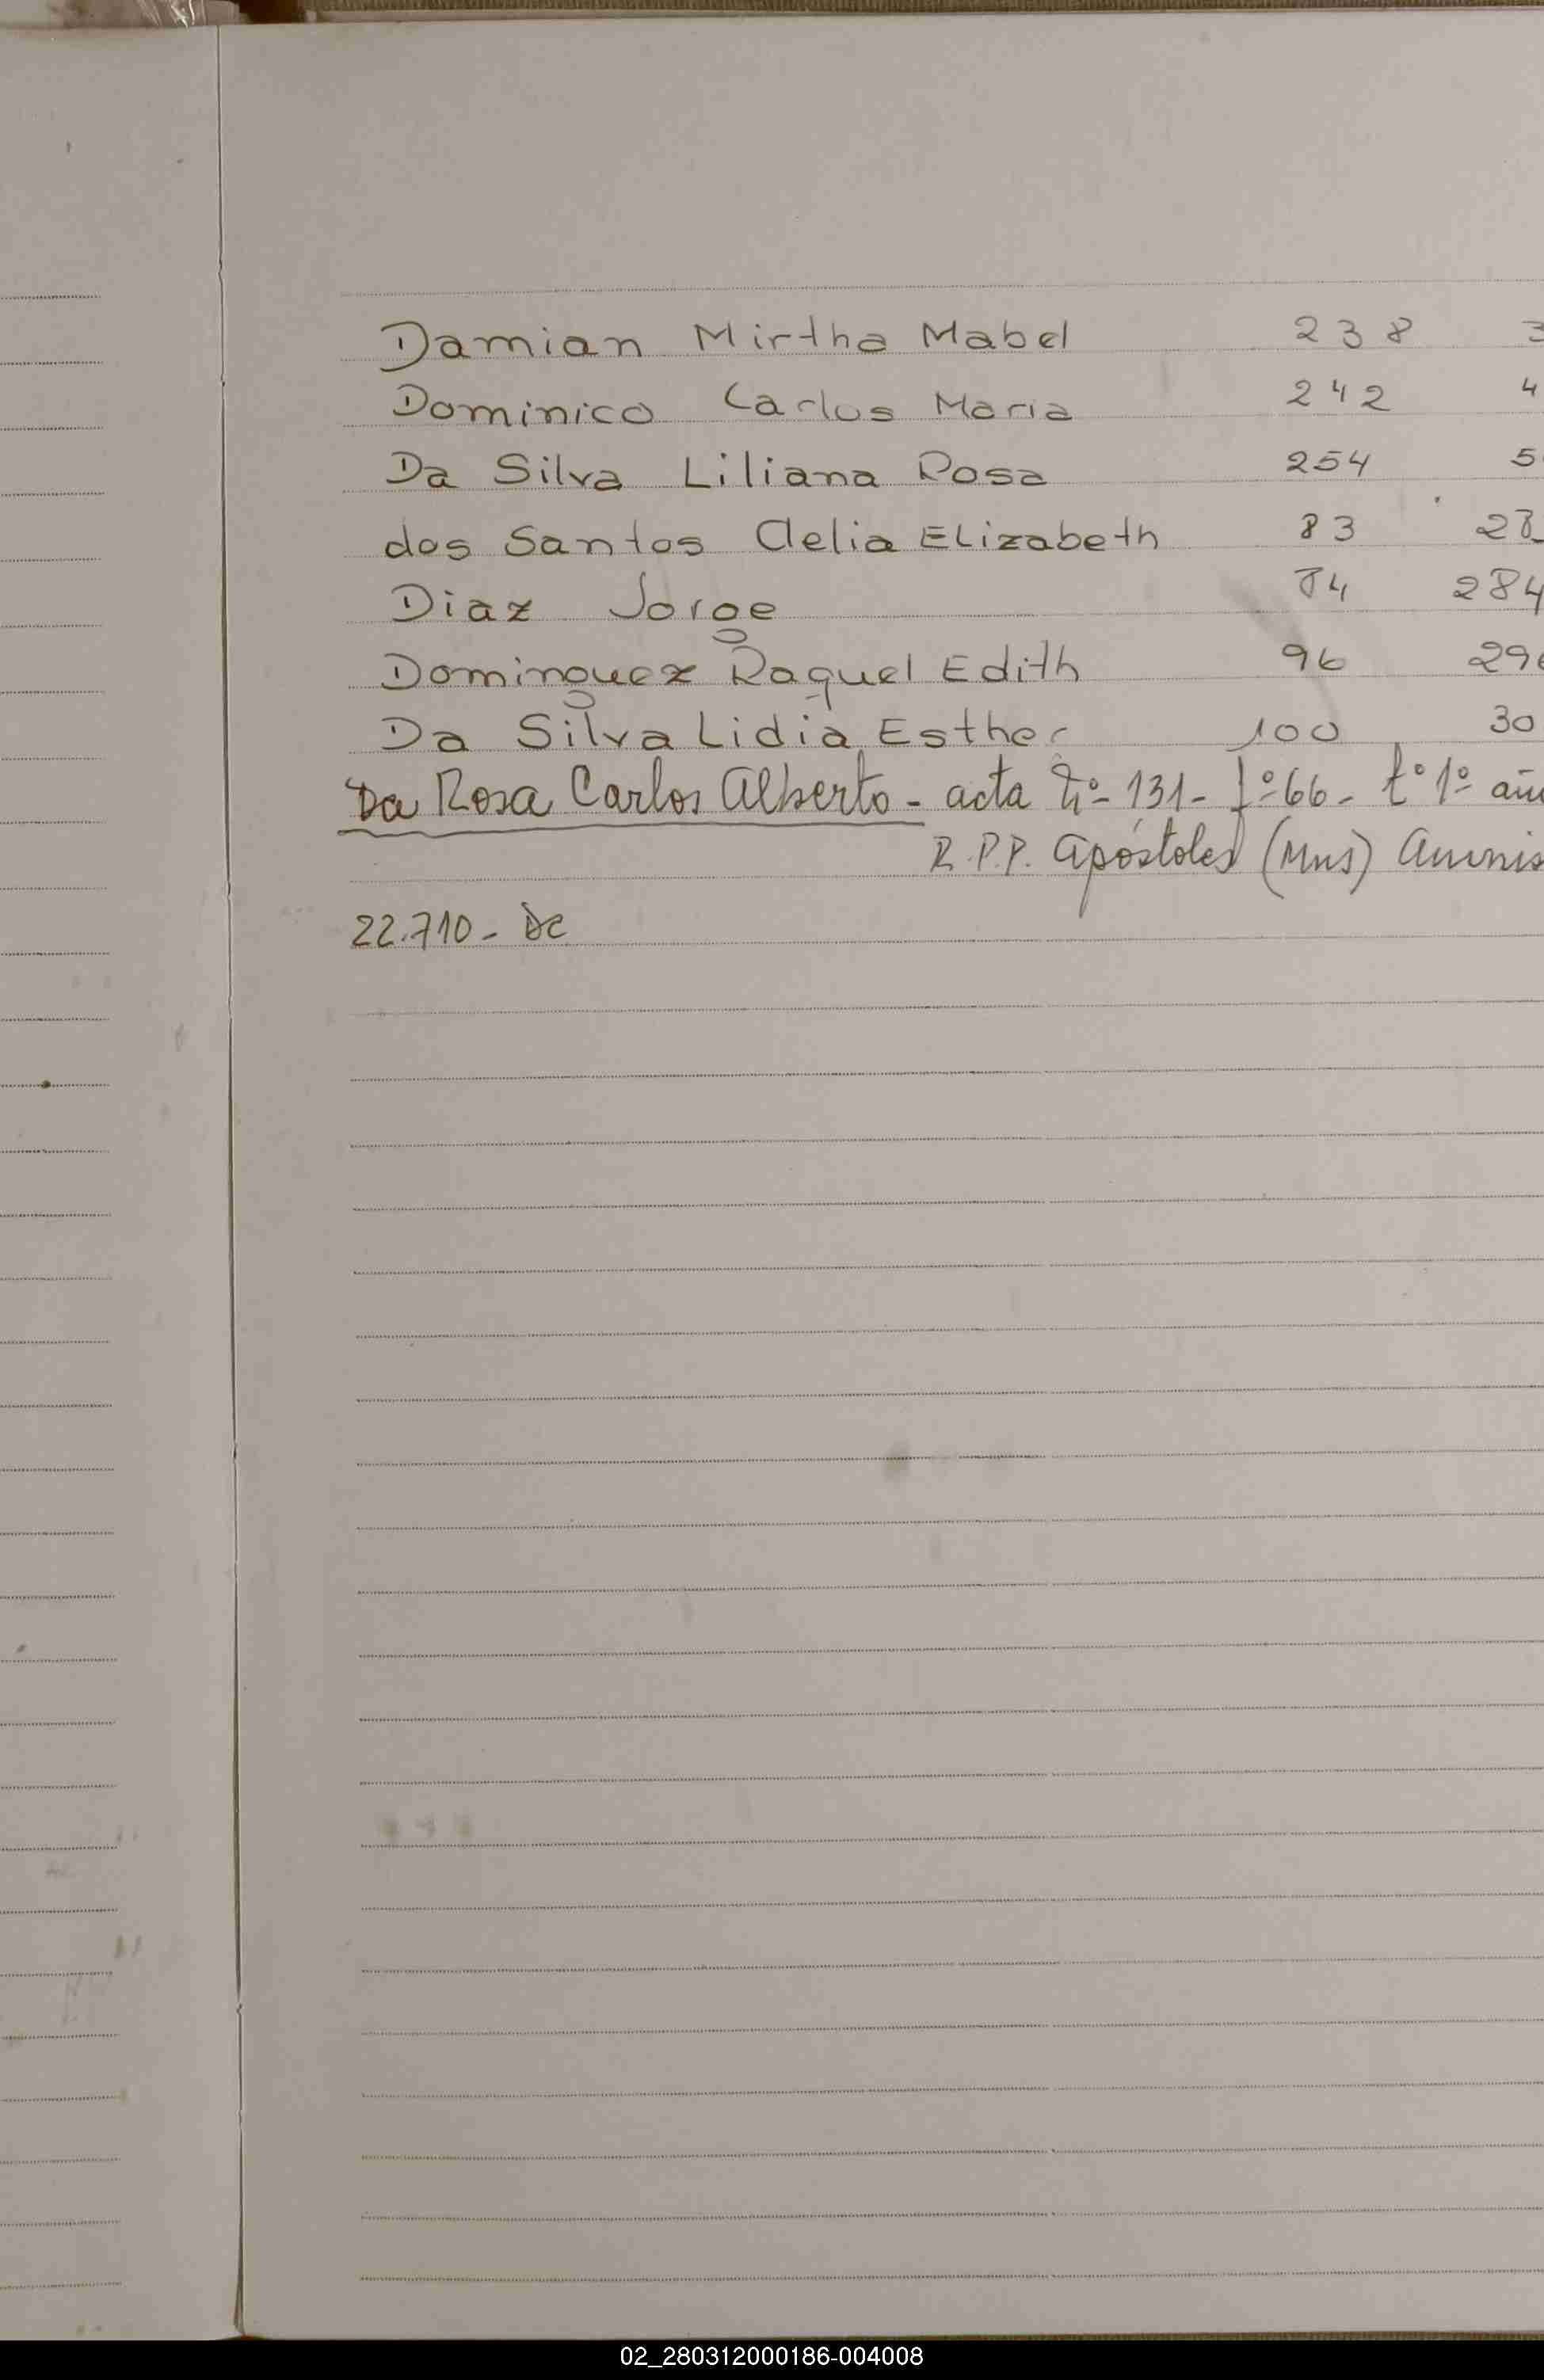 Damian Mirtha Mabel 238 3
Dominico Carlos Maria 242 4
Da Silva Liliana Rosa 254 5
dos Santos Clelia Elizabeth 83 28
Diaz Jorge 84 284
Dominguez Raquel Edith 96 296
Da Silva Lidia Esther 100 30
Da Rosa Carlos Alberto - acta nº 131 - fº 66 - tº 1º añ
R.P.P. Apóstoles (Mns)
22.710 -
02_280312000186-004008